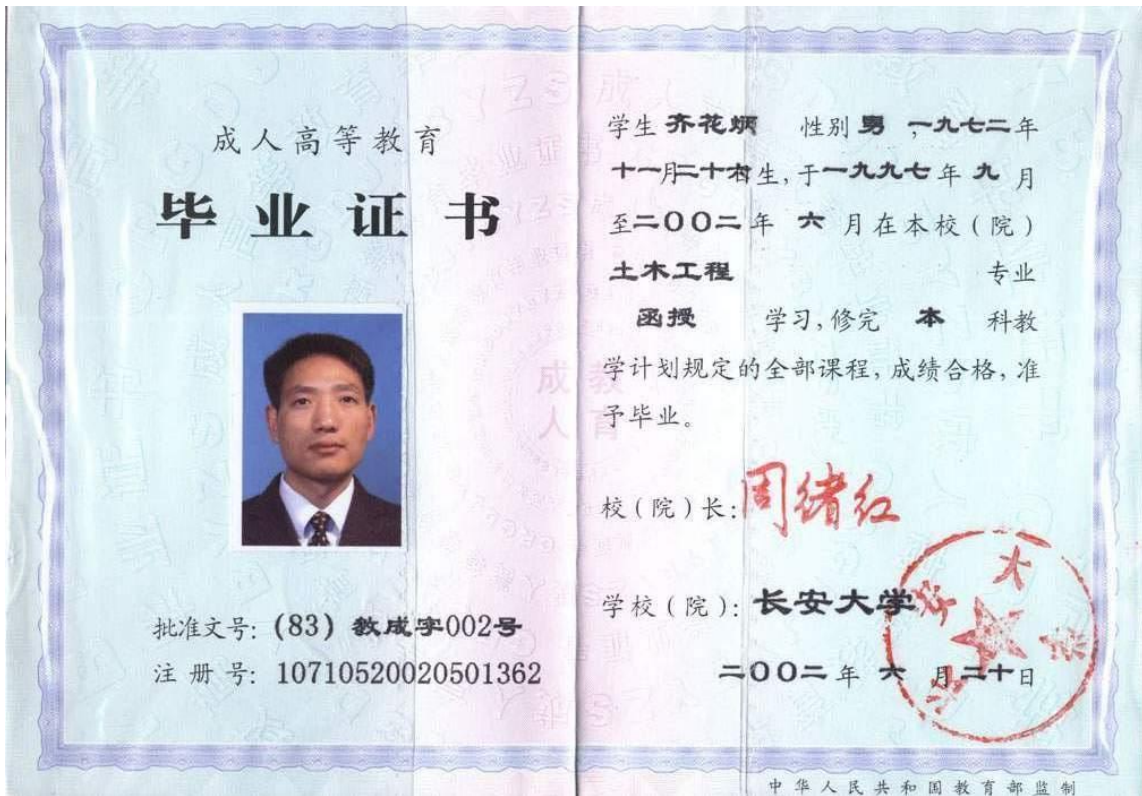 成人高等教育
毕业证书
批准文号：(83) 教成字002号
注 册 号：10710520020501362
学生 齐花炳 性别 男 ，一九七二年
十一月二十 生，于一九九七年 九 月
至二〇〇二年 六 月在本校（院）
土木工程 专业
函授 学习，修完 本 科教
学计划规定的全部课程，成绩合格，准
予毕业。
校（院）长：周绪红
学校（院）：长安大学
二〇〇二年 六 月二十日
中华人民共和国教育部监制
成教
人育